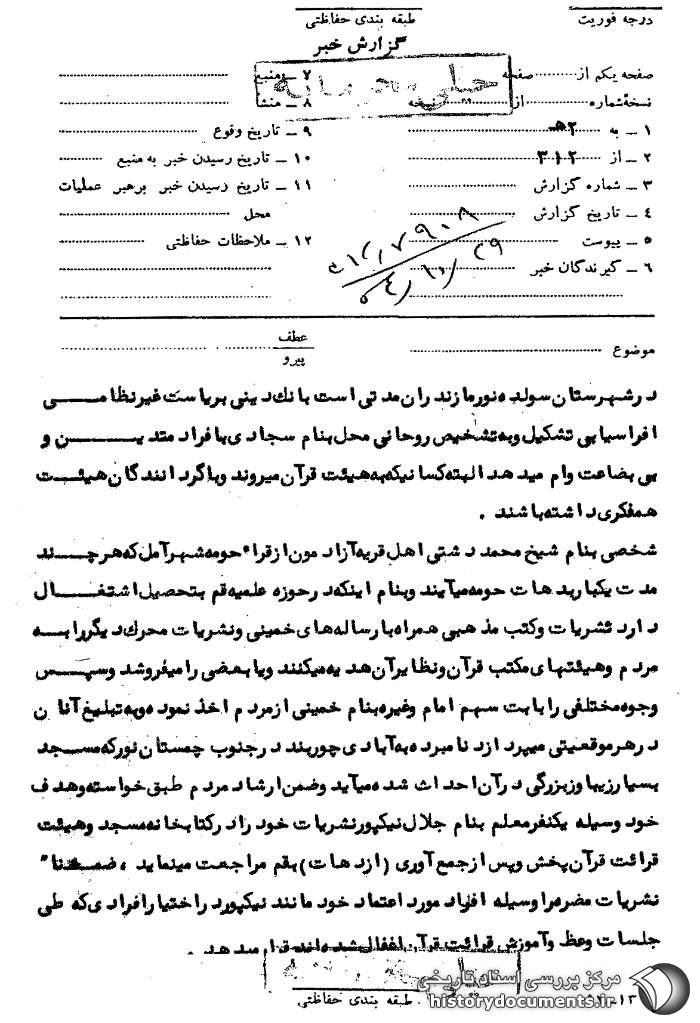 درجه فوریت
طبقه بندی حفاظتی
گزارش خبر
صفحه یکم از صفحه
نسخهٔ شماره از نسخه
۱ ـ به ۲هـ
۲ ـ از ۳۱۲
۳ ـ شماره گزارش
٤ ـ تاریخ گزارش
۵ ـ پیوست
٦ ـ گیرندگان خبر
خیلی محرمانه
۷ ـ منبع
۸ ـ منشا
۹ ـ تاریخ وقوع
۱۰ ـ تاریخ رسیدن خبر به منبع
۱۱ ـ تاریخ رسیدن خبر برهبر عملیات
محل
۱۲ ـ ملاحظات حفاظتی
موضوع
عطف
پیرو
در شهرستان سولده نور مازندران مدتی است بانک دینی بریاست غیرنظامی
افراسیابی تشکیل و به تشخیص روحانی محل بنام سجادی بافراد متدین و
بی بضاعت وام میدهد البته کسانیکه به هیئت قرآن میروند و باگردانندگان هیئت
همفکری داشته باشند .
شخصی بنام شیخ محمد دشتی اهل قریه آزاد مون از قراء حومه شهر آمل که هرچند
مدت یکبار بدهات حومه میآیند و بنام اینکه در حوزه علمیه قم بتحصیل اشتغال
دارد نشریات و کتب مذهبی همراه با رساله های خمینی و نشریات محرک دیگر را به
مردم و هیئتهای مکتب قرآن و نظایر آن هدیه میکنند و یا بعضی را میفروشد و سپس
وجوه مختلفی را بابت سهم امام و غیره بنام خمینی از مردم اخذ نموده و به تبلیغ آنان
در هر موقعیتی میپردازد نامبرده به آبادی چوربند در جنوب چمستان نور که مسجد
بسیار زیبا و بزرگی در آن احداث شده میآید و ضمن ارشاد مردم طبق خواسته و هدف
خود وسیله یکنفر معلم بنام جلال نیکپور نشریات خود را در کتابخانه مسجد و هیئت
قرائت قرآن پخش و پس از جمع آوری (از دهات) بقم مراجعت مینماید ، ضمناً
نشریات مضره را وسیله افراد مورد اعتماد خود مانند نیکپور در اختیار افرادی که طی
جلسات وعظ و آموزش قرائت قرآن اغفال شده اند قرار میدهد .
طبقه بندی حفاظتی
مرکز بررسی اسناد تاریخی
historydocuments.ir